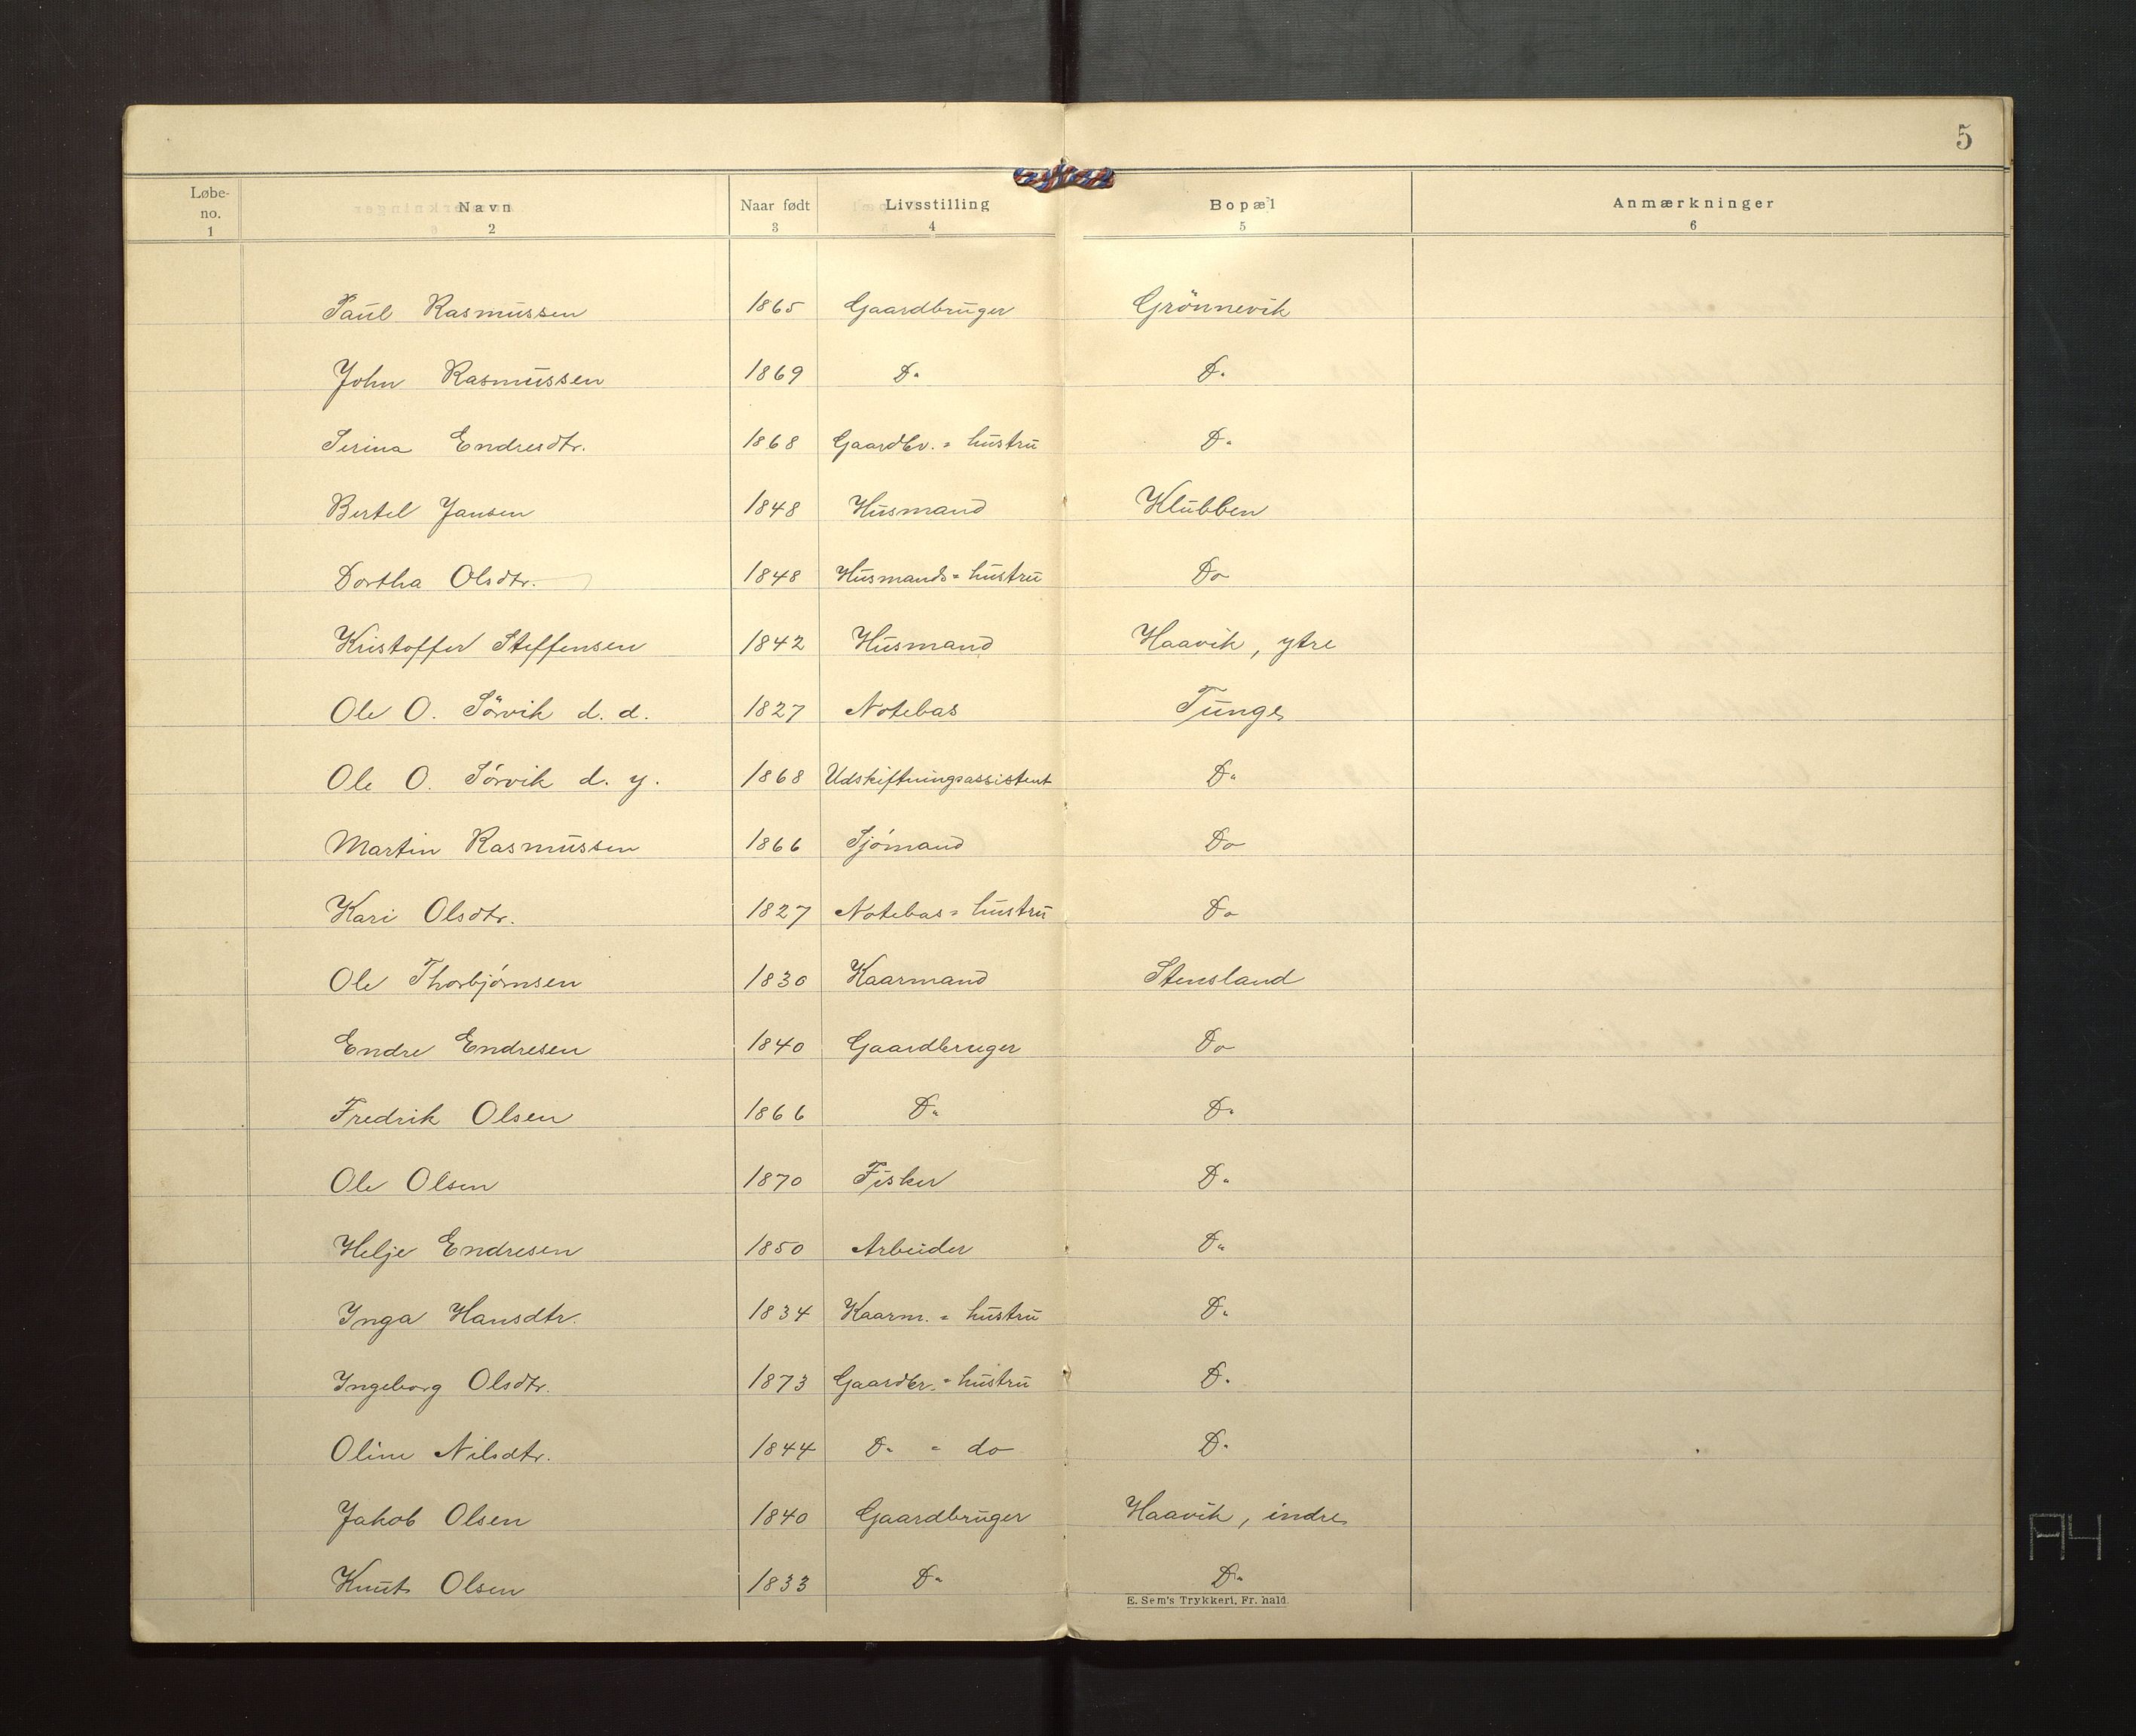 5
Løbe-no. Navn Naar født Livsstilling Bopæl Anmærkninger
1 2 3 4 5 6
Paul Rasmussen 1865 Gaardbruger Grönnevik
John Rasmussen 1869 Do Do
Serina Endresdtr. 1868 Gaardbr. = hustru Do
Bertel Jansen 1848 Husmand Klubben
Dortha Olsdtr. 1848 Husmands = hustru Do
Kristoffer Steffensen 1842 Husmand Haavik, ytre
Ole O. Sörvik d. d. 1827 Notebas Tunge
Ole O. Sörvik d. y. 1868 Udskiftningsassistent Do
Martin Rasmussen 1866 Sjómand Do
Kari Olsdtr. 1827 Notebas = hustru Do
Ole Thorbjórnsen 1830 Kaarmand Stensland
Endre Endresen 1840 Gaardbruger Do
Fredrik Olsen 1866 Do Do
Ole Olsen 1870 Fisker Do
Helje Endresen 1850 Arbeider Do
Inga Hansdtr. 1834 Kaarm. = hustru Do
Ingeborg Olsdtr. 1873 Gaardbr. = hustru Do
Oline Nilsdtr. 1844 Do = do Do
Jakob Olsen 1840 Gaardbruger Haavik, indre
Knut Olsen 1833 Do Do
E. Sem's Trykkeri, Fr.hald.
A4